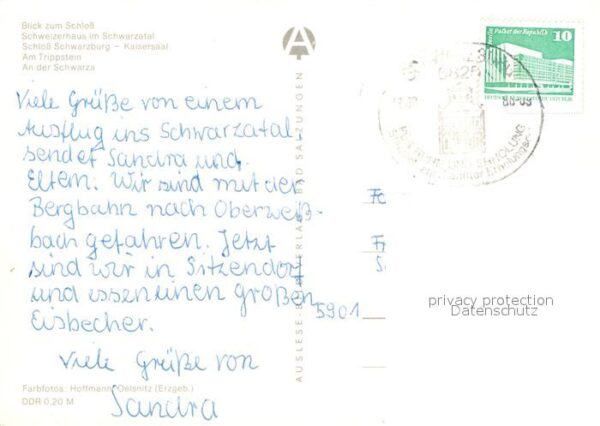 Blick zum Schloß
Schweizerhaus im Schwarzatal
Schloß Schwarzburg – Kaisersaal
Am Trippstein
An der Schwarza
Viele Grüße von einem
Ausflug ins Schwarzatal
sendet Sandra und
Eltern. Wir sind mit der
Bergbahn nach Oberweiß-
bach gefahren. Jetzt
sind wir in Sitzendorf
und essen einen großen
Eisbecher.
Viele Grüße von
Sandra
Farbfotos: Hoffmann, Oelsnitz (Erzgeb.)
DDR 0,20 M
A
Palast der Republik
10
ERHOLUNG
5901
privacy protection
Datenschutz